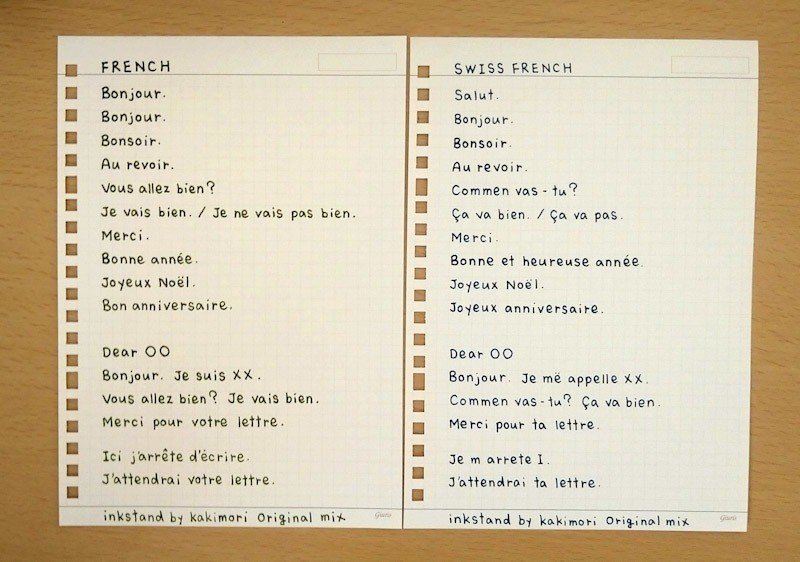 FRENCH
Bonjour.
Bonjour.
Bonsoir.
Au revoir.
Vous allez bien?
Je vais bien. / Je ne vais pas bien.
Merci.
Bonne année.
Joyeux Noël.
Bon anniversaire.
Dear OO
Bonjour. Je suis XX.
Vous allez bien? Je vais bien.
Merci pour votre lettre.
Ici j'arrête d'écrire.
J'attendrai votre lettre.
inkstand by kakimori Original mix
SWISS FRENCH
Salut.
Bonjour.
Bonsoir.
Au revoir.
Commen vas-tu?
Ça va bien. / Ça va pas.
Merci.
Bonne et heureuse année.
Joyeux Noël.
Joyeux anniversaire.
Dear OO
Bonjour. Je më appelle XX.
Commen vas-tu? Ça va bien.
Merci pour ta lettre.
Je m arrete I.
J'attendrai ta lettre.
inkstand by kakimori Original mix